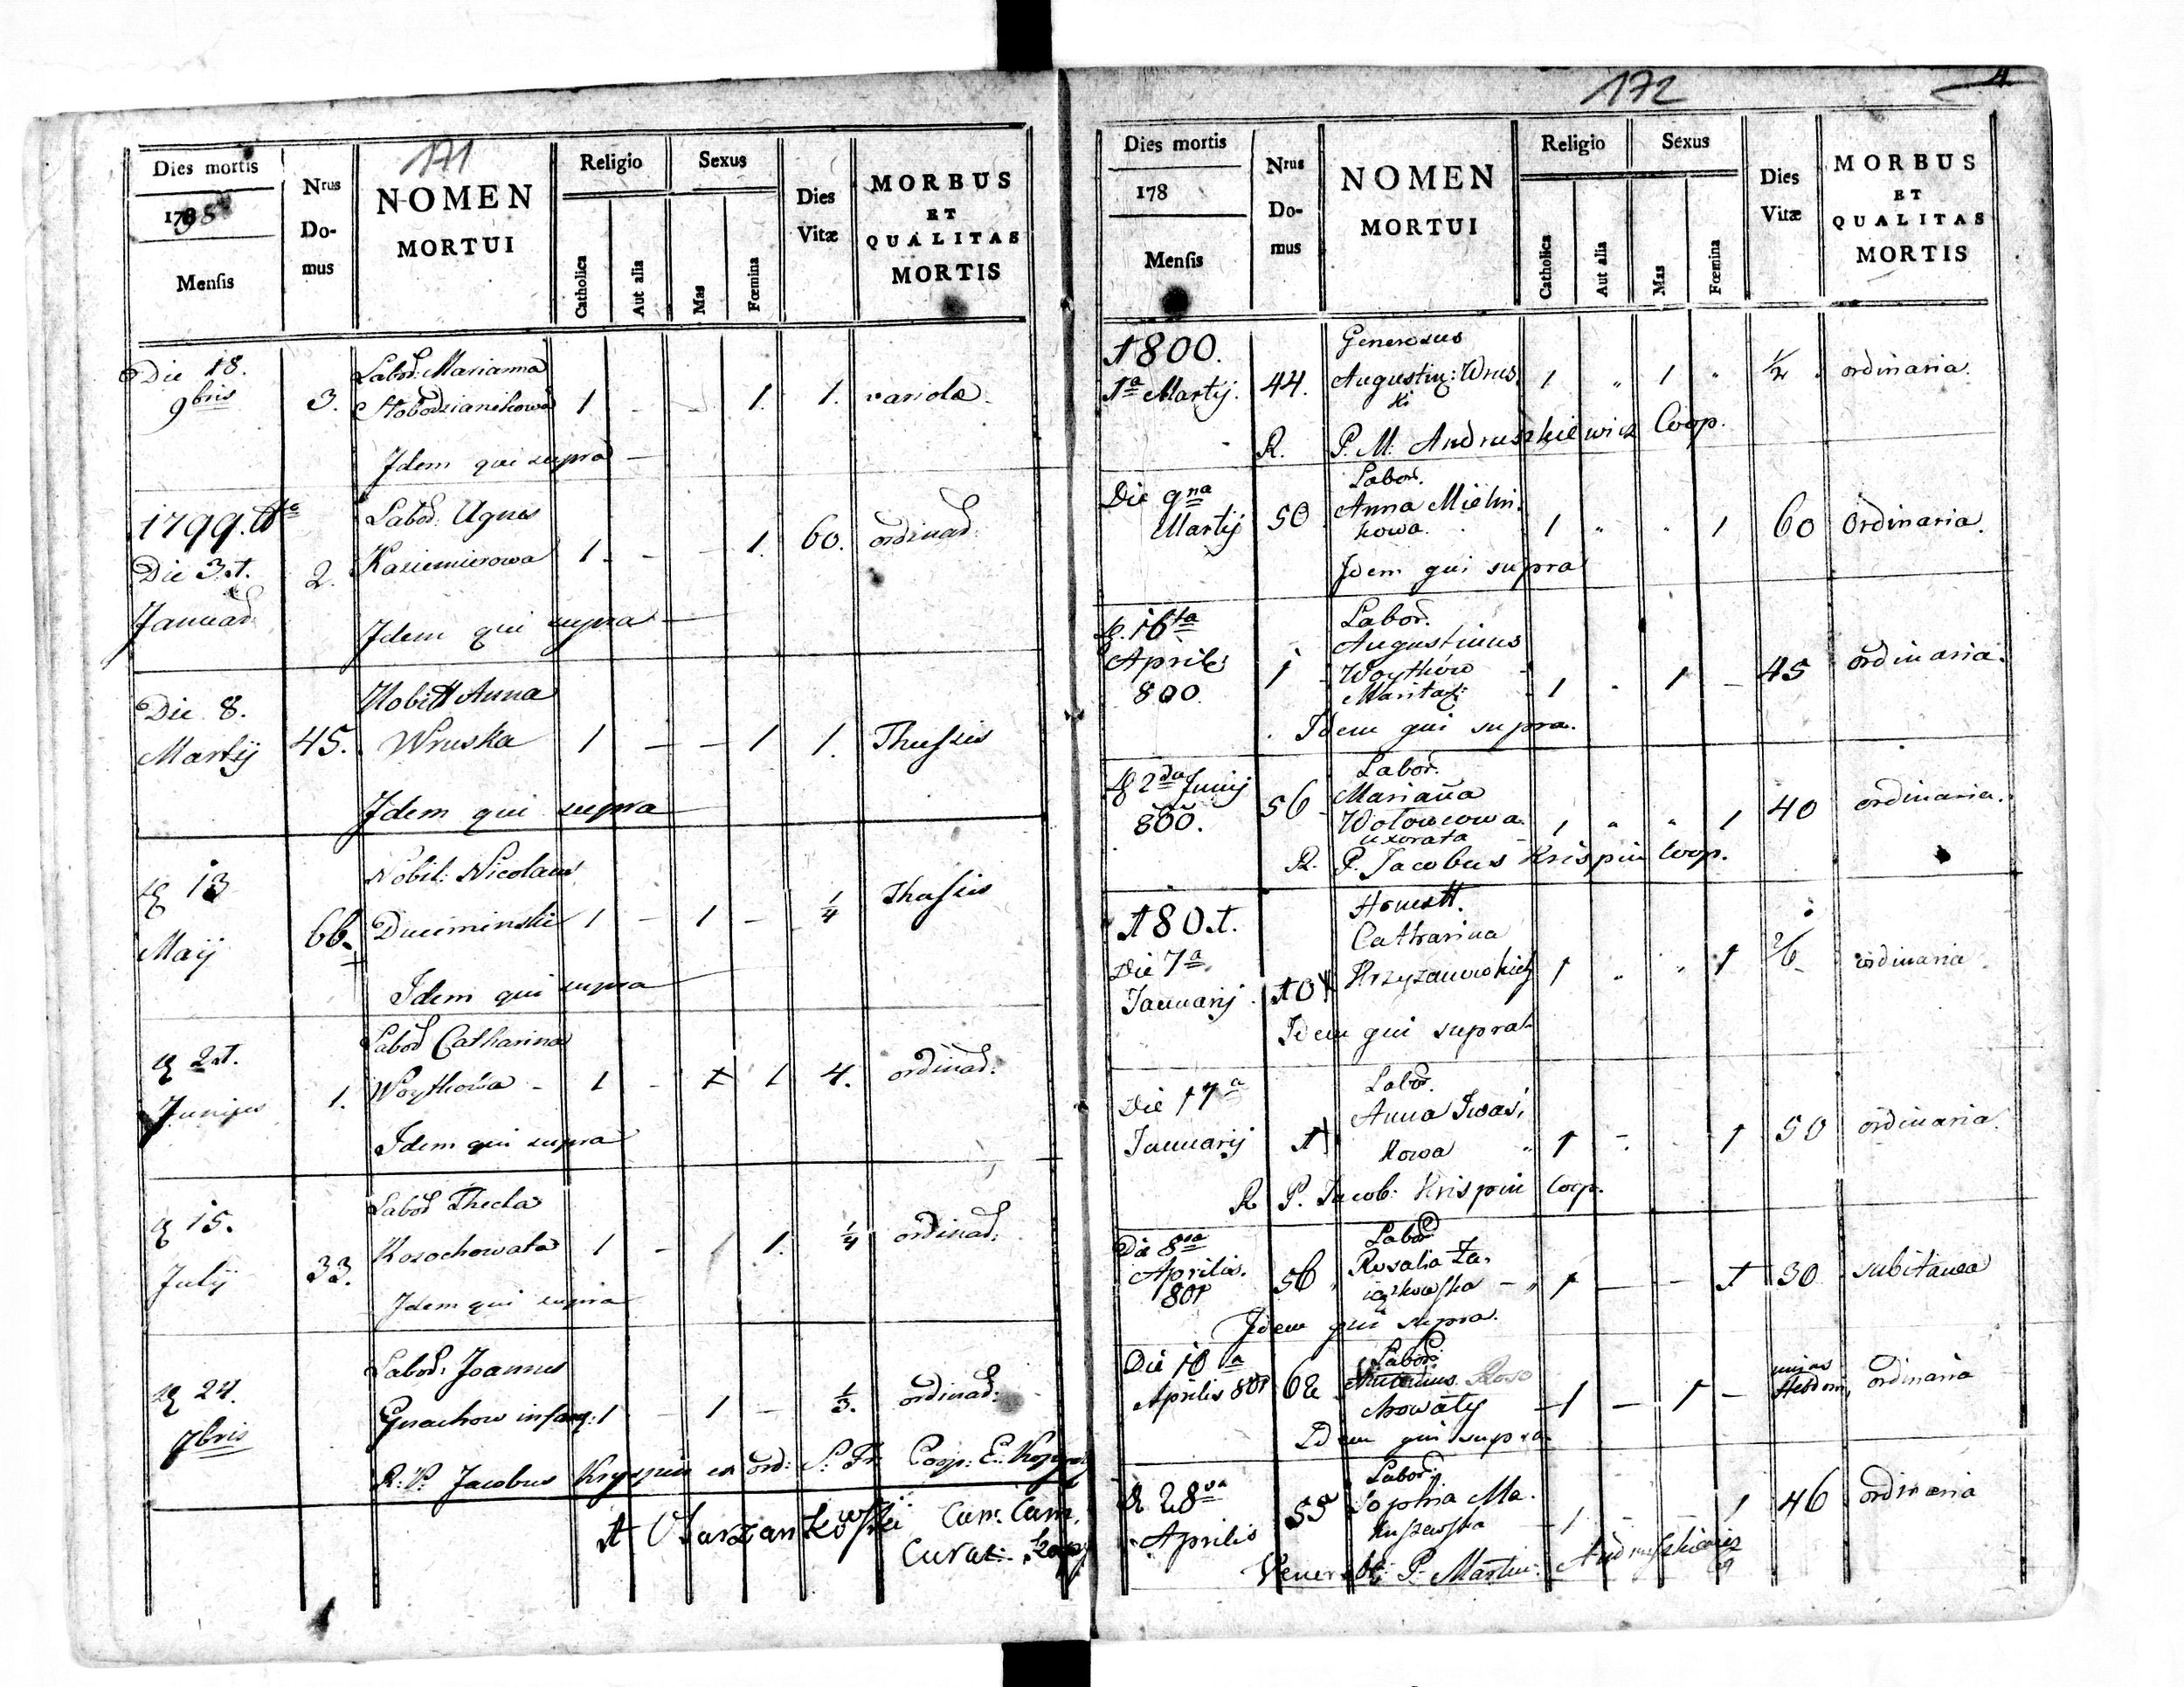 171
Dies mortis
1798
Mensis
Nrus
Do-
mus
NOMEN
MORTUI
Religio
Catholica
Aut alia
Sexus
Mas
Fœmina
Dies
Vitæ
MORBUS
ET
QUALITAS
MORTIS
Die 18.
9bris
3.
Labor: Marianna
Słobodzianikowa
1 - - 1. 1. variola.
Idem qui supra
1799.
Die 31.
Januar:
2.
Labor: Agnes
Kazimierowa
1. - - 1. 60. ordinar:
Idem qui supra
Die 8.
Martij
45.
Anna
Wruska
1 - - 1 1.
Idem qui supra
13
Maij
66.
Nobil: Nicolaus
Duciminski
1 - 1 - 1/4
Idem qui supra
21.
Junijus
1.
Labor Catharina
Woytkowa
1 - 1 4. ordinar:
Idem qui supra
15.
Julij
33.
Labor Thecla
Kosochowata
1 - 1. 1/4 ordinar:
Idem qui supra
24.
7bris
Labor: Joannes
infans: 1 - 1 - 1/3. ordinar:
R. P. Jacobus Kryspin ex ord: S. Fr. Coop:
172
4
Dies mortis
178
Mensis
Nrus
Do-
mus
NOMEN
MORTUI
Religio
Catholica
Aut alia
Sexus
Mas
Fœmina
Dies
Vitæ
MORBUS
ET
QUALITAS
MORTIS
1800.
1a Martij.
44.
Generosus
Augustin: Wrus.
ki
1 " 1 " 1/2 ordinaria
R. P. M. Andruszkiewicz Coop.
Die 9na
Martij
50
Labor.
Anna Mielni.
kowa.
1 " " 1 60 Ordinaria.
Idem qui supra
16ta
Aprilis
800.
1
Labor.
Augustinus
Woytków
1 - 1 - 45 ordinaria.
Idem qui supra.
2da Junij
800.
56
Labor.
Marianna
Wołowcowa.
uxorata
1 " " 1 40 ordinaria.
R. P. Jacobus Krispin Coop.
1801.
Die 7a
Januarij
Honest.
Catharina
1 " " 1 ordinaria
Idem qui supra
Die 17a
Januarij
1
Labor.
Anna Iwasi,
kowa
1 - 1 50 ordinaria.
R P. Jacob: Krispin Coop.
Die 8va
Aprilis.
801
56
Labor
Rosalia Za,
1 - - 1 30 subitanea
Idem qui supra.
Die 10a
Aprilis 801
62
Labor:
Antonius Koso
chowaty
1 - 1 - unius
Hebdom, ordinaria
Idem qui supra
28va
Aprilis
55
Labor:
Sophia Ma.
1 - - 1 46 ordinaria
Venerabi: P. Martin: